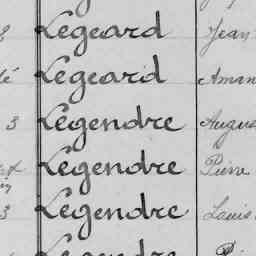 Legeard Jean
Legeard Aman
3 Legendre Augus
Legendre Pierre
3 Legendre Louis
Legendre